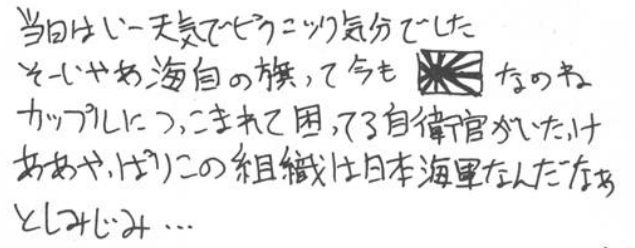 当日はいー天気でピクニック気分でした
そーいやあ海自の旗って今も なのね
カップルにつっこまれて困ってる自衛官がいたっけ
ああやっぱりこの組織は日本海軍なんだなぁ
としみじみ…